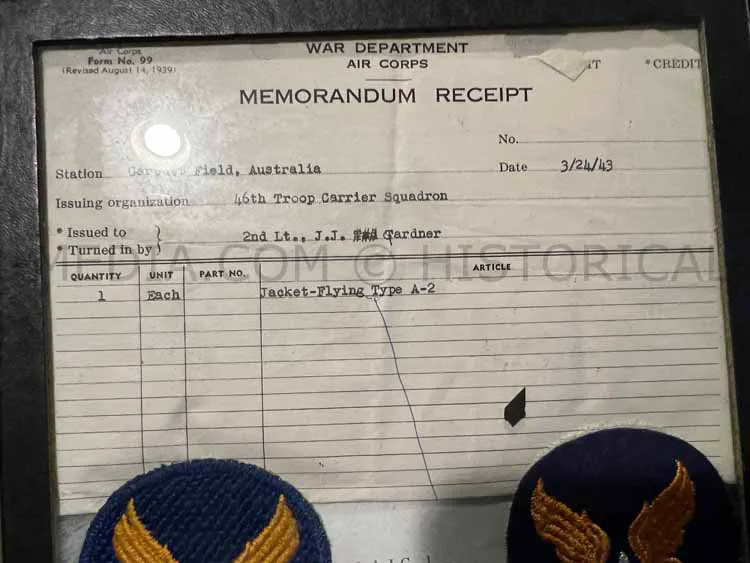 Air Corps
Form No. 99
(Revised August 14, 1939)
WAR DEPARTMENT
AIR CORPS
*CREDIT
MEMORANDUM RECEIPT
No.
Station Field, Australia
Date 3/24/43
Issuing organization 46th Troop Carrier Squadron
* Issued to
* Turned in by
2nd Lt., J.J. Gardner
MEDIA.COM © HISTORICAL
QUANTITY UNIT PART NO. ARTICLE
1 Each Jacket-Flying Type A-2